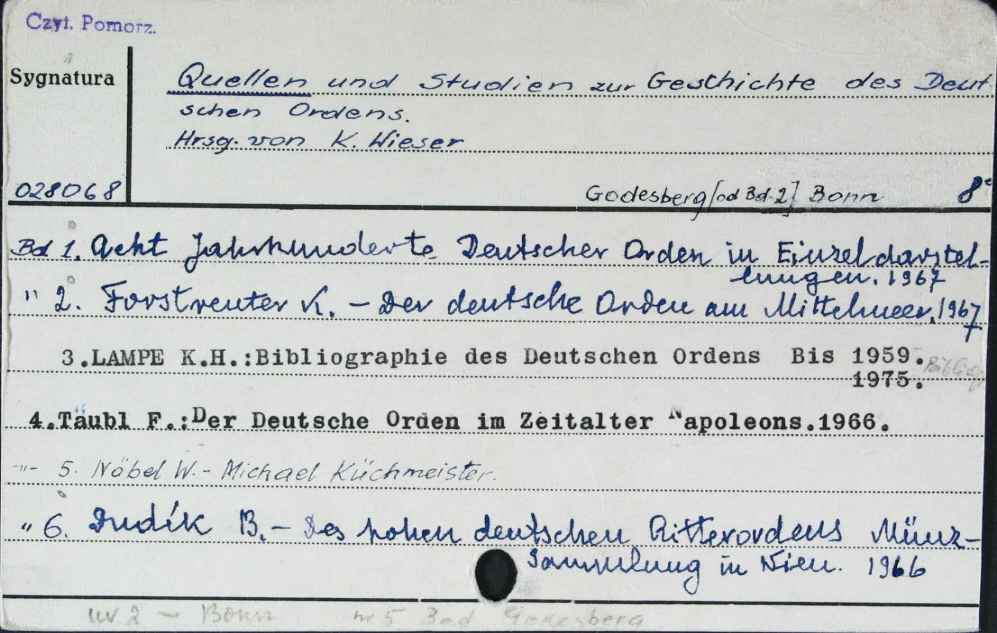 Czyt. Pomorz.
Sygnatura
Quellen und Studien zur Geschichte des Deut-
schen Ordens.
Hrsg. von K. Wieser
028068
Godesberg [od Bd. 2] Bonn 8°
Bd 1. Acht Jahrhunderte Deutscher Orden in Einzeldarstel-
lungen. 1967
" 2. Forstreuter K. – Der deutsche Orden am Mittelmeer, 1967
3.LAMPE K.H.:Bibliographie des Deutschen Ordens Bis 1959.
1975.
4.Täubl F.:Der Deutsche Orden im Zeitalter Napoleons.1966.
-"- 5. Nöbel W. - Michael Küchmeister.
" 6. Dudík B. – Des hohen deutschen Ritterordens Münz-
Sammlung in Wien. 1966
nr 2 – Bonn nr 5 Bad Godesberg